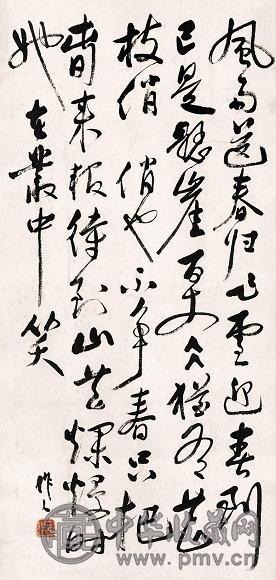 風雨送春归飞雪迎春到
已是懸崖百丈冰猶有花
枝俏俏也不争春只把
春来报待到山花爛熳时
她在叢中笑
中華收藏網
www.pmv.cn